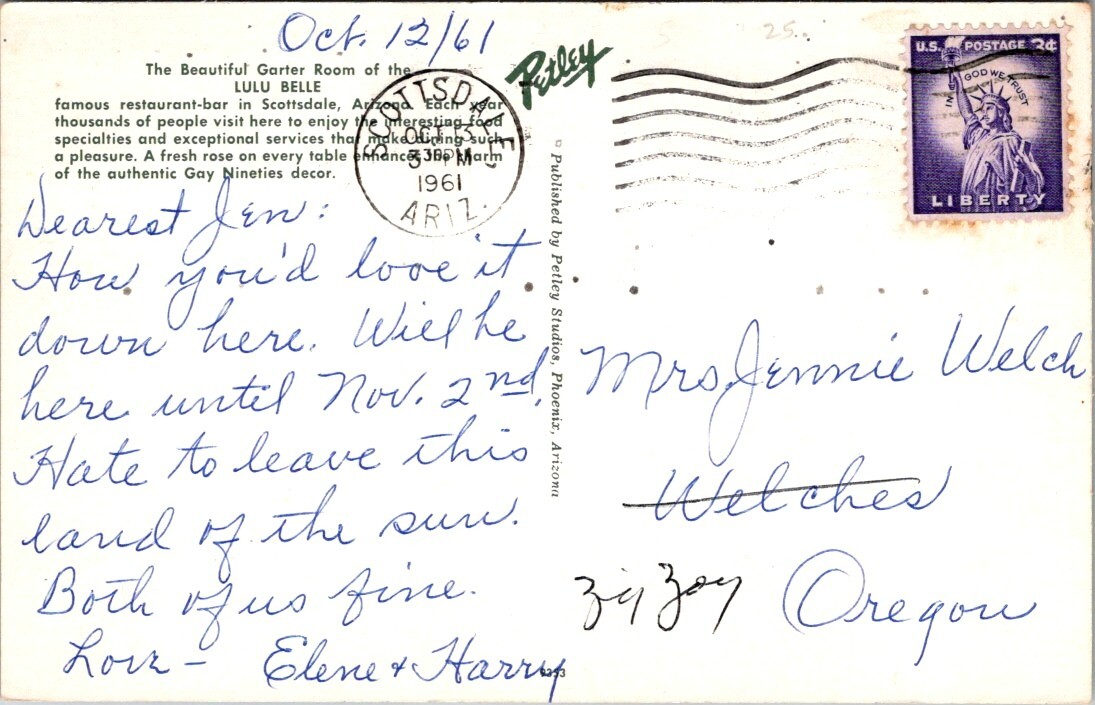 Oct. 12/61
25.
The Beautiful Garter Room of the
LULU BELLE
famous restaurant-bar in Scottsdale, Arizona. Each year
thousands of people visit here to enjoy the interesting food
specialties and exceptional services that make dining such
a pleasure. A fresh rose on every table enhances the charm
of the authentic Gay Nineties decor.
Petley
SCOTTSDALE,
OCT 13
3 PM
1961
ARIZ.
U.S. POSTAGE 3¢
IN GOD WE TRUST
LIBERTY
Dearest Jen:
How you'd love it
down here. Will be
here until Nov. 2nd.
Hate to leave this
land of the sun.
Both of us fine.
Love - Elene & Harry
© Published by Petley Studios, Phoenix, Arizona
Mrs. Jennie Welch
Welches
Zig Zag Oregon